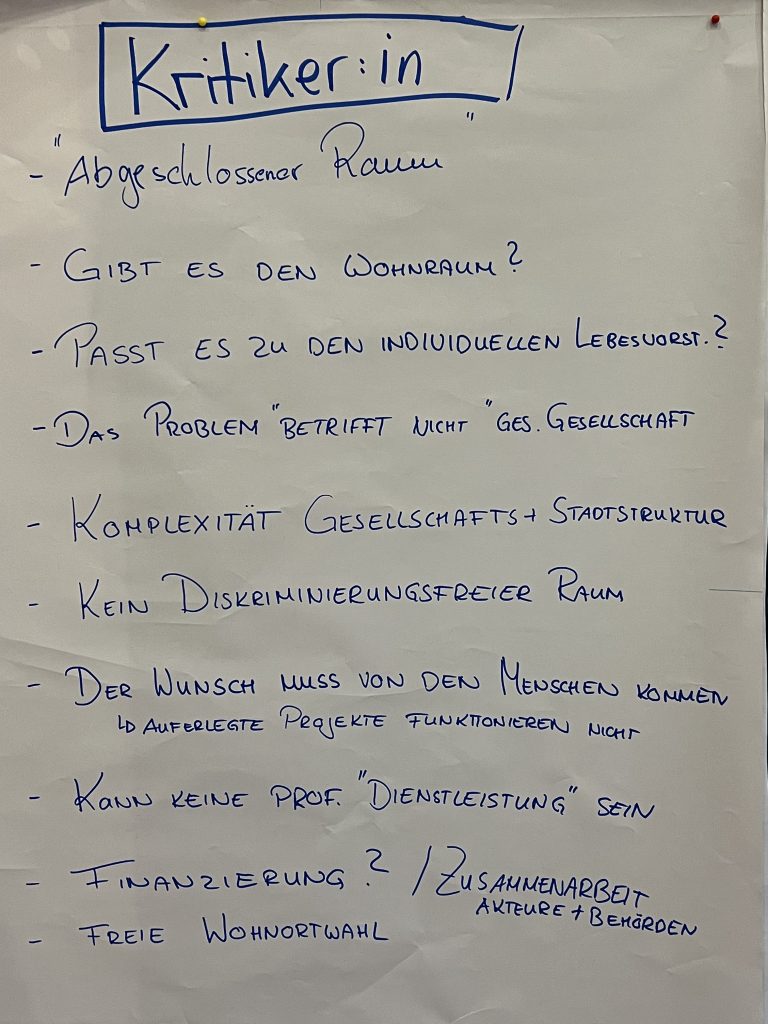 Kritiker:in
- "Abgeschlossener Raum"
- GIBT ES DEN WOHNRAUM?
- PASST ES ZU DEN INDIVIDUELLEN LEBESVORST.?
- DAS PROBLEM "BETRIFFT NICHT "GES. GESELLSCHAFT
- KOMPLEXITÄT GESELLSCHAFTS + STADTSTRUKTUR
- KEIN DISKRIMINIERUNGSFREIER RAUM
- DER WUNSCH MUSS VON DEN MENSCHEN KOMMEN
↳ AUFERLEGTE PROJEKTE FUNKTIONIEREN NICHT
- KANN KEINE PROF. "DIENSTLEISTUNG" SEIN
- FINANZIERUNG? / ZUSAMMENARBEIT
AKTEURE + BEHÖRDEN
- FREIE WOHNORTWAHL